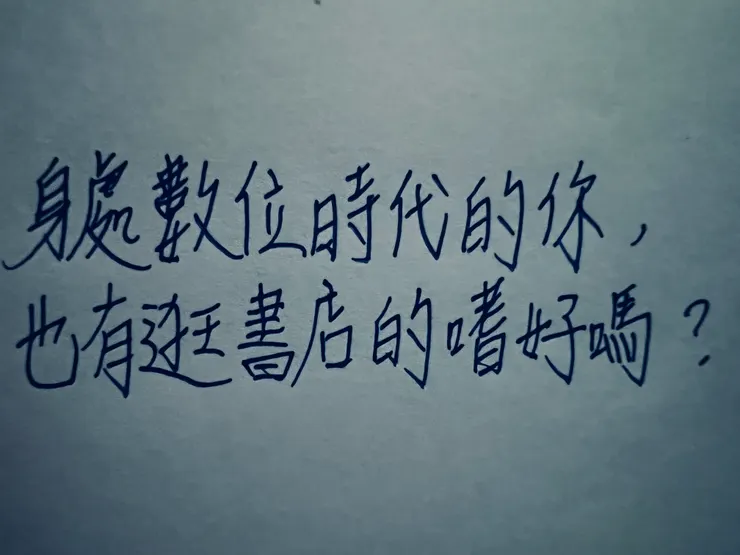 身處數位時代的你，
也有逛書店的嗜好嗎？